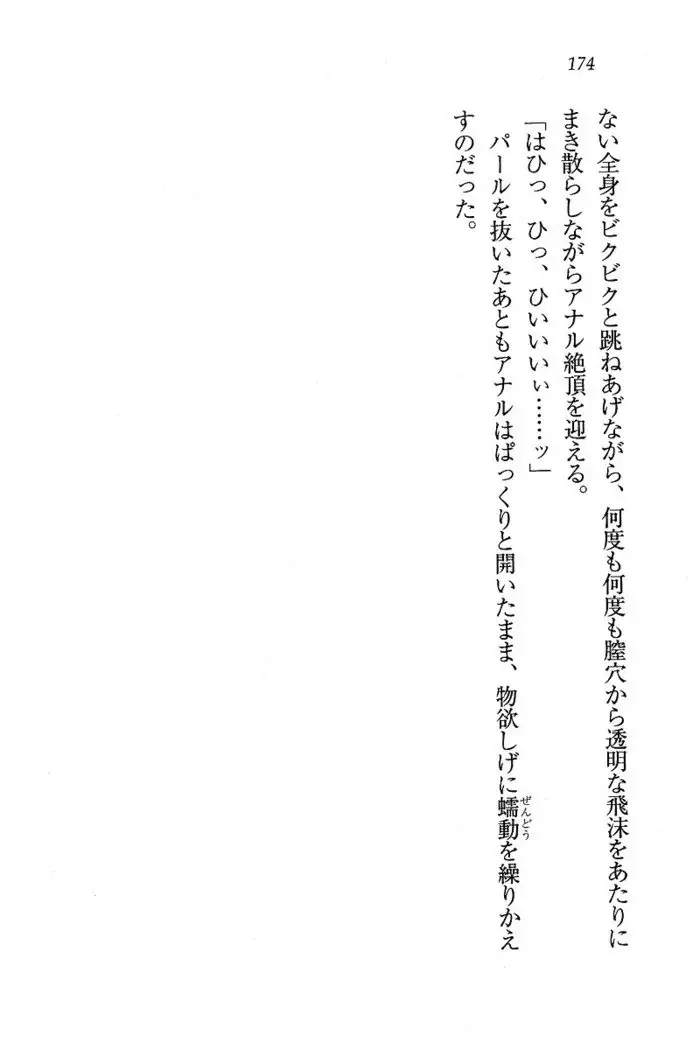 174
ない全身をビクビクと跳ねあげながら、何度も何度も膣穴から透明な飛沫をあたりに
まき散らしながらアナル絶頂を迎える。
「はひっ、ひっ、ひいいいぃ……ッ」
パールを抜いたあともアナルはぱっくりと開いたまま、物欲しげに蠕動を繰りかえ
ぜんどう
すのだった。